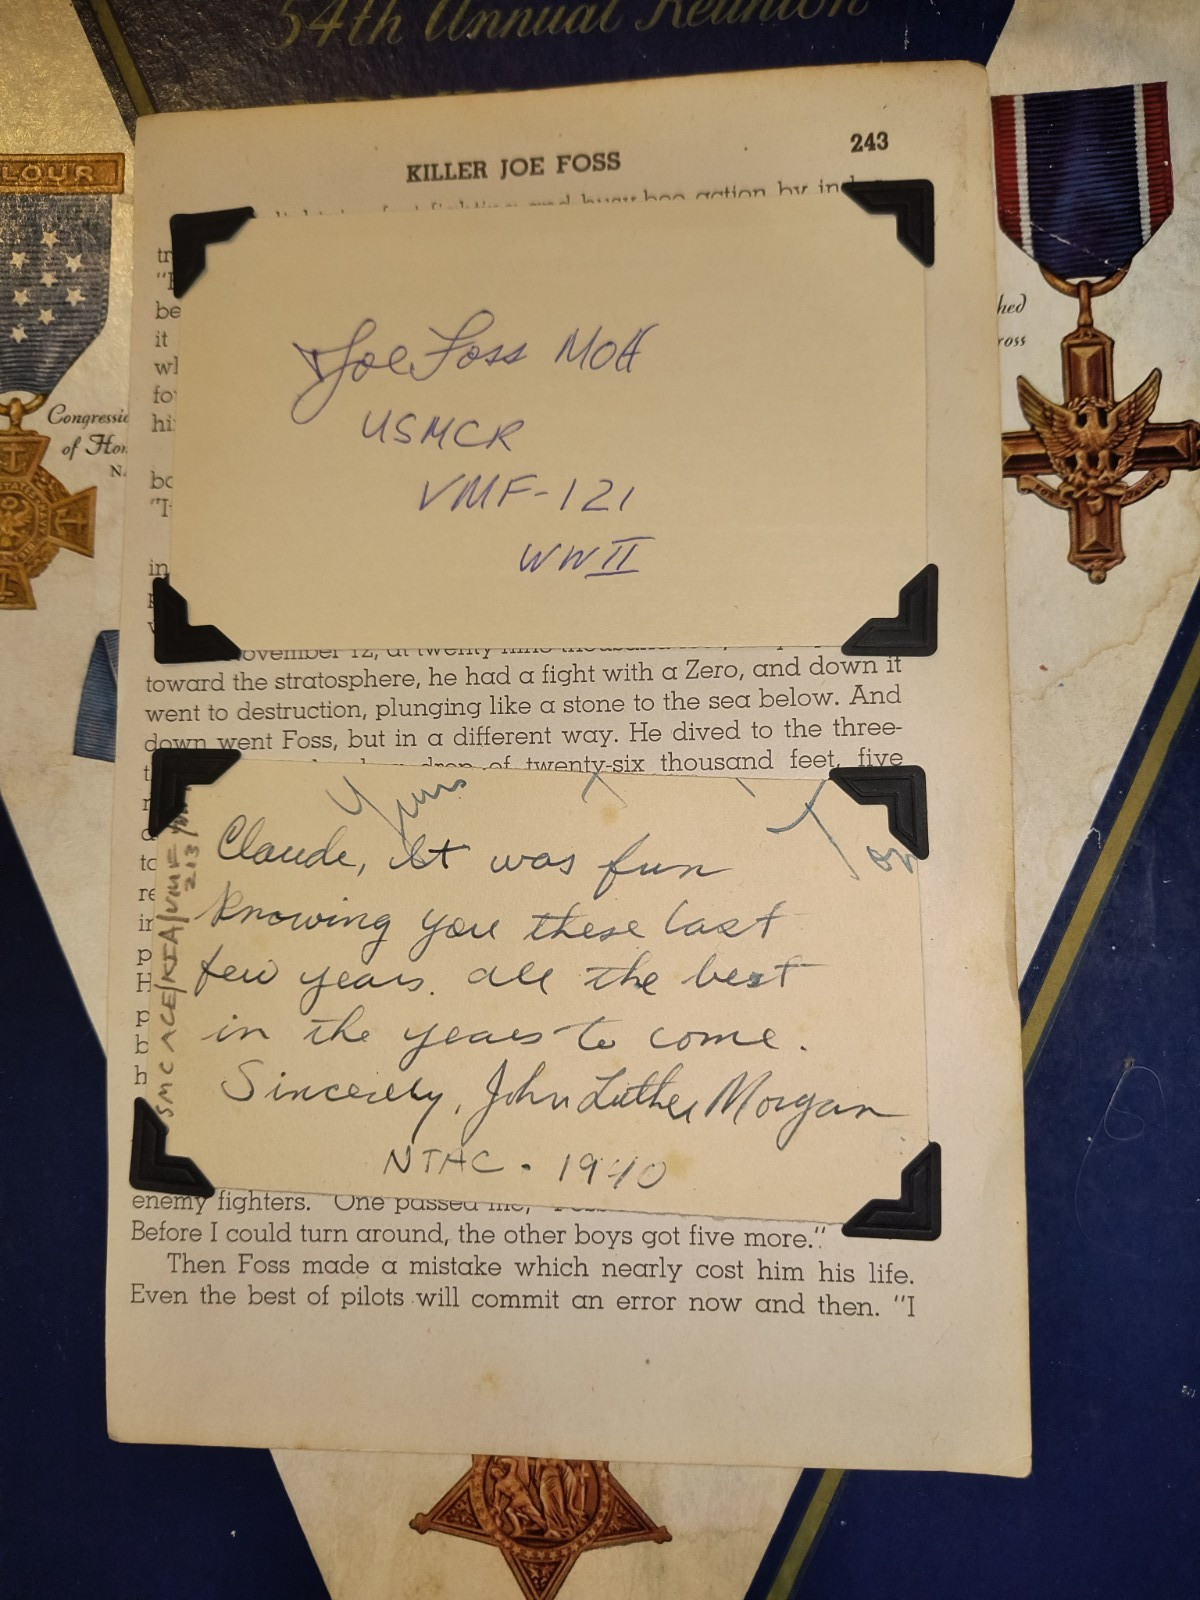 54th Annual Reunion
243
KILLER JOE FOSS
fighting and busy-bee action by
LOUR
Joe Foss MOH
USMCR
VMF-121
WWII
Congressio
of Hon
N
hed
ross
tr
be
it
wh
fo
hi
bo
"I
in
November 12, at twenty
toward the stratosphere, he had a fight with a Zero, and down it
went to destruction, plunging like a stone to the sea below. And
down went Foss, but in a different way. He dived to the three-
drop of twenty-six thousand feet, five
Yours
Claude, it was fun
knowing you these last
few years. all the best
in the years to come.
Sincerely, John Luther Morgan
NTHC. 1940
SMC ACE/KIA/VMF
213
to
re
in
p
H
p
b
h
enemy fighters. "One passed me,
Before I could turn around, the other boys got five more."
Then Foss made a mistake which nearly cost him his life.
Even the best of pilots will commit an error now and then. "I